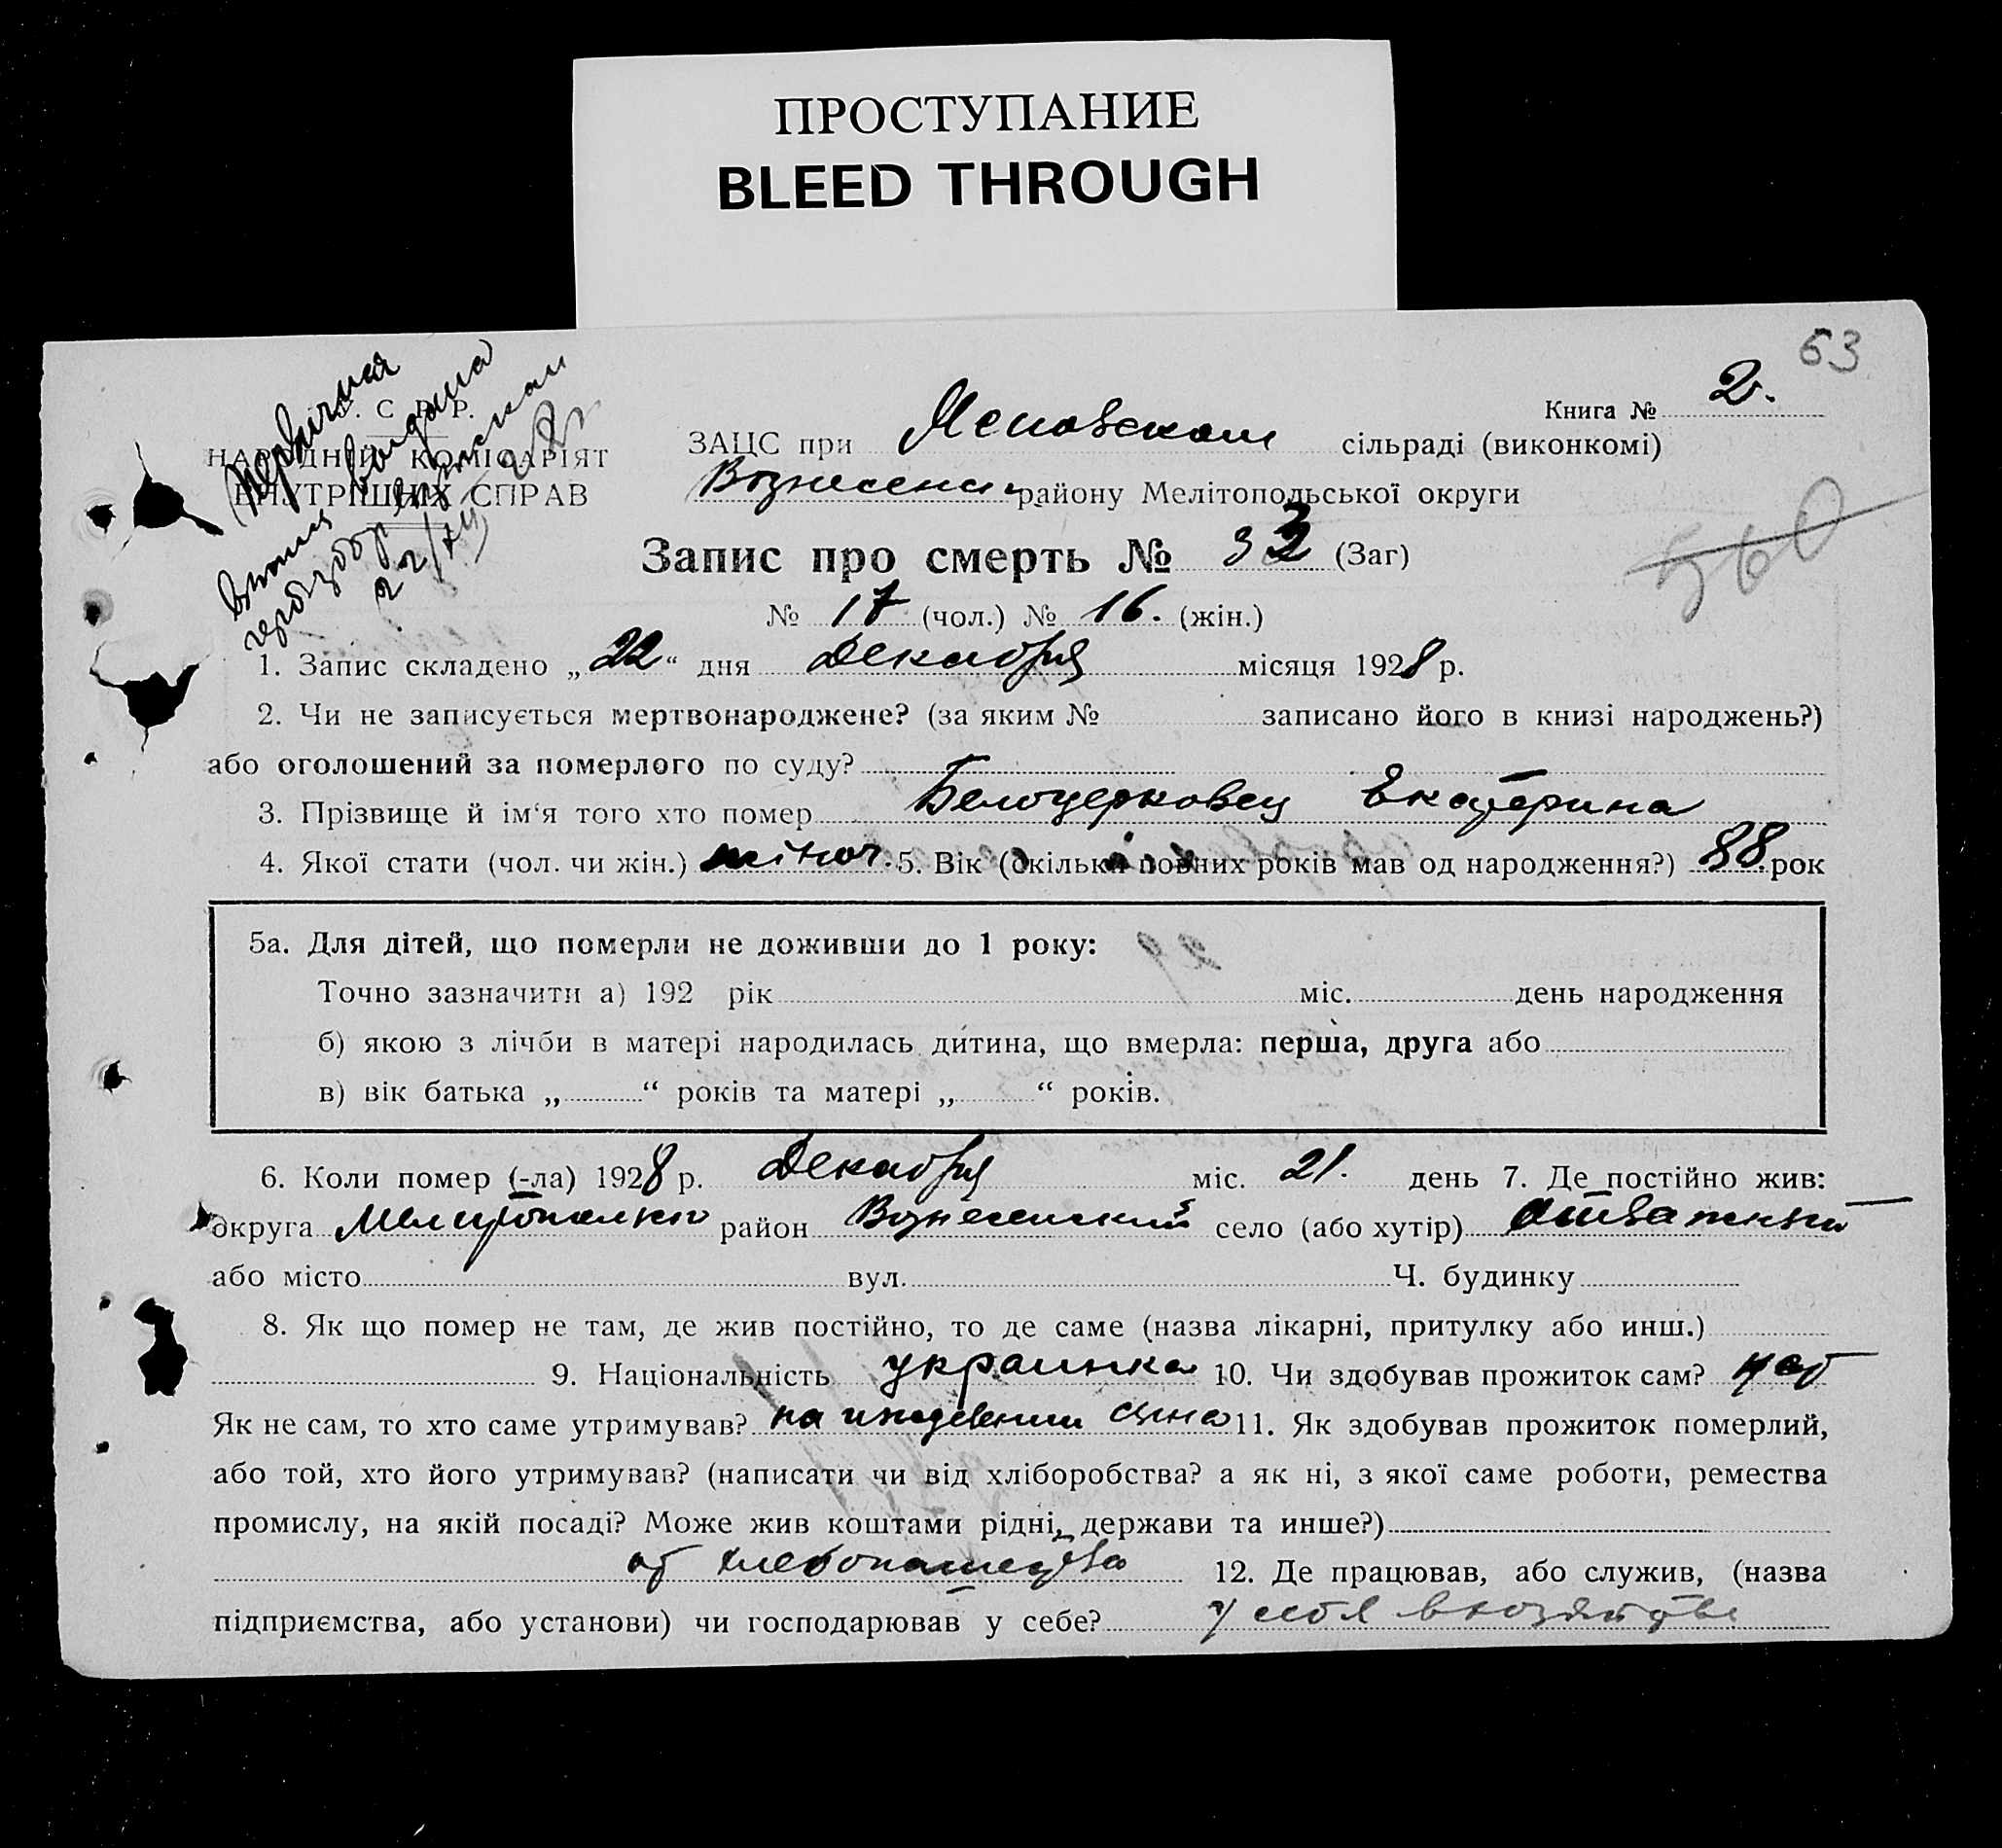 ПРОСТУПАНИЕ
BLEED THROUGH
53
У. С. Р. Р.
Книга № 2.
НАРОДНІЙ КОМІСАРІЯТ
ЗАЦС при сільраді (виконкомі)
ВНУТРІШНІХ СПРАВ
Вознесенск району Мелітопольської округи
560
Запис про смерть № 33 (Заг)
№ 17 (чол.) № 16. (жін.)
1. Запис складено „22“ дня Декабря місяця 1928 р.
2. Чи не записується мертвонароджене? (за яким № записано його в книзі народжень?)
або оголошений за померлого по суду?
3. Прізвище й ім‘я того хто помер Белоцерковец Екатерина
4. Якої стати (чол. чи жін.) жіноч. 5. Вік (скільки повних років мав од народження?) 88 рок
5а. Для дітей, що померли не доживши до 1 року:
Точно зазначити а) 192 рік міс. день народження
б) якою з лічби в матері народилась дитина, що вмерла: перша, друга або
в) вік батька „ “ років та матері „ “ років.
6. Коли помер (-ла) 1928 р. Декабря міс. 21. день 7. Де постійно жив:
округа район Вознесенский село (або хутір)
або місто вул. Ч. будинку
8. Як що помер не там, де жив постійно, то де саме (назва лікарні, притулку або инш.)
9. Національність украинка 10. Чи здобував прожиток сам? нет
Як не сам, то хто саме утримував? на иждевении сина 11. Як здобував прожиток померлий,
або той, хто його утримував? (написати чи від хліборобства? а як ні, з якої саме роботи, ремества
промислу, на якій посаді? Може жив коштами рідні, держави та инше?)
от хлебопашества 12. Де працював, або служив, (назва
підприємства, або установи) чи господарював у себе? у себя в хозяйстве